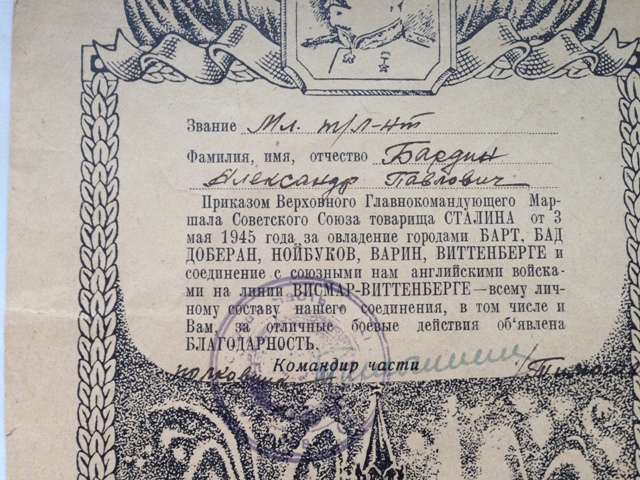 Звание Мл. т/л-нт
Фамилия, имя, отчество Бардин
Александр Павлович
Приказом Верховного Главнокомандующего Мар-
шала Советского Союза товарища СТАЛИНА от 3
мая 1945 года за овладение городами БАРТ, БАД
ДОБЕРАН, НОЙБУКОВ, ВАРИН, ВИТТЕНБЕРГЕ и
соединение с союзными нам английскими войска-
ми на линии ВИСМАР-ВИТТЕНБЕРГЕ—всему лич-
ному составу нашего соединения, в том числе и
Вам, за отличные боевые действия об‘явлена
БЛАГОДАРНОСТЬ.
Командир части
полковник